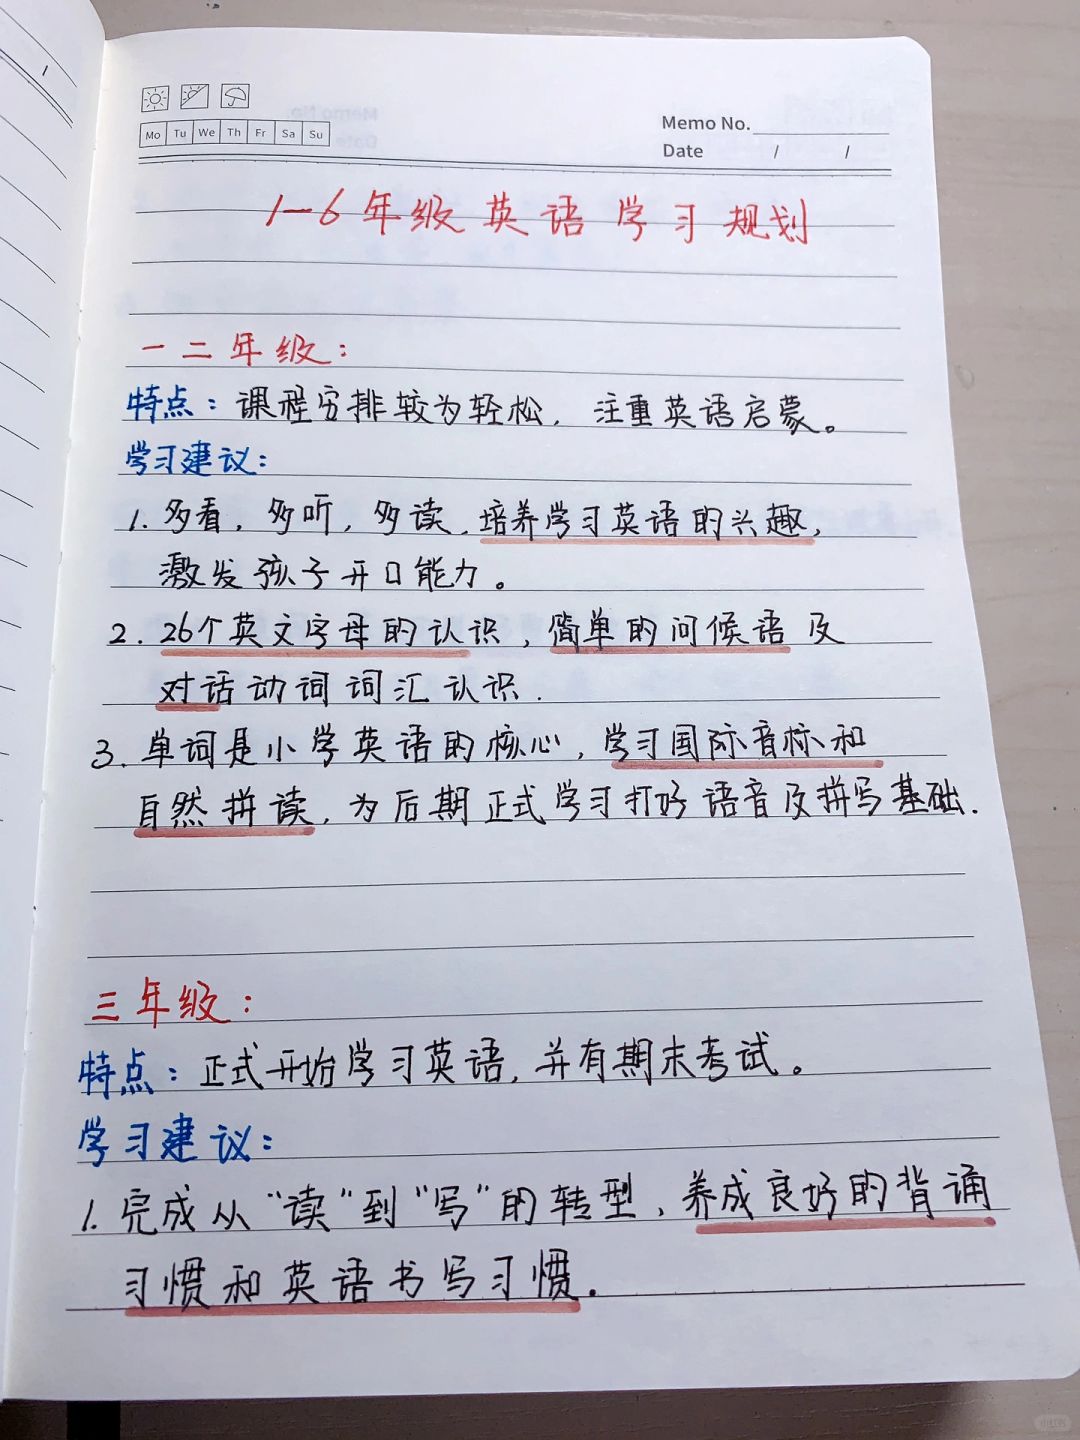 Mo Tu We Th Fr Sa Su
Memo No.
Date / /
1-6年级英语学习规划
一二年级：
特点：课程安排较为轻松，注重英语启蒙。
学习建议：
1. 多看，多听，多读，培养学习英语的兴趣，
激发孩子开口能力。
2. 26个英文字母的认识，简单的问候语及
对话动词词汇认识.
3. 单词是小学英语的核心，学习国际音标和
自然拼读，为后期正式学习打好语音及拼写基础.
三年级：
特点：正式开始学习英语，并有期末考试。
学习建议：
1. 完成从“读”到“写”的转型，养成良好的背诵
习惯和英语书写习惯.
小红书